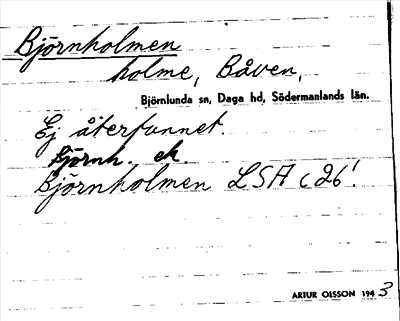 Björnholmen
holme, Båven,
Björnlunda sn, Daga hd, Södermanlands län.
Ej återfunnet.
Björnh. ek.
Björnholmen LSA c 26!
ARTUR OLSSON 1943